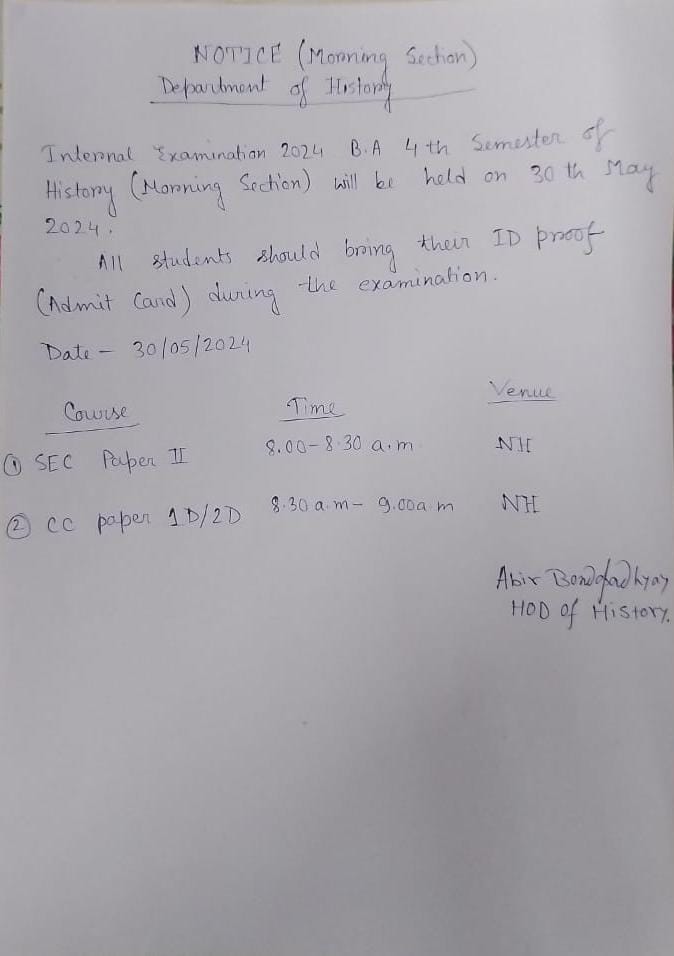 NOTICE (Morning Section)
Department of History
Internal Examination 2024 B.A 4th Semester of
History (Morning Section) will be held on 30th May
2024.
All students should bring their ID proof
(Admit Card) during the examination.
Date - 30/05/2024
Course Time Venue
① SEC Paper II 8.00-8.30 a.m. NH
② CC paper 1D/2D 8.30 a.m- 9.00 a.m NH
Abir Bandopadhyay
HOD of History.